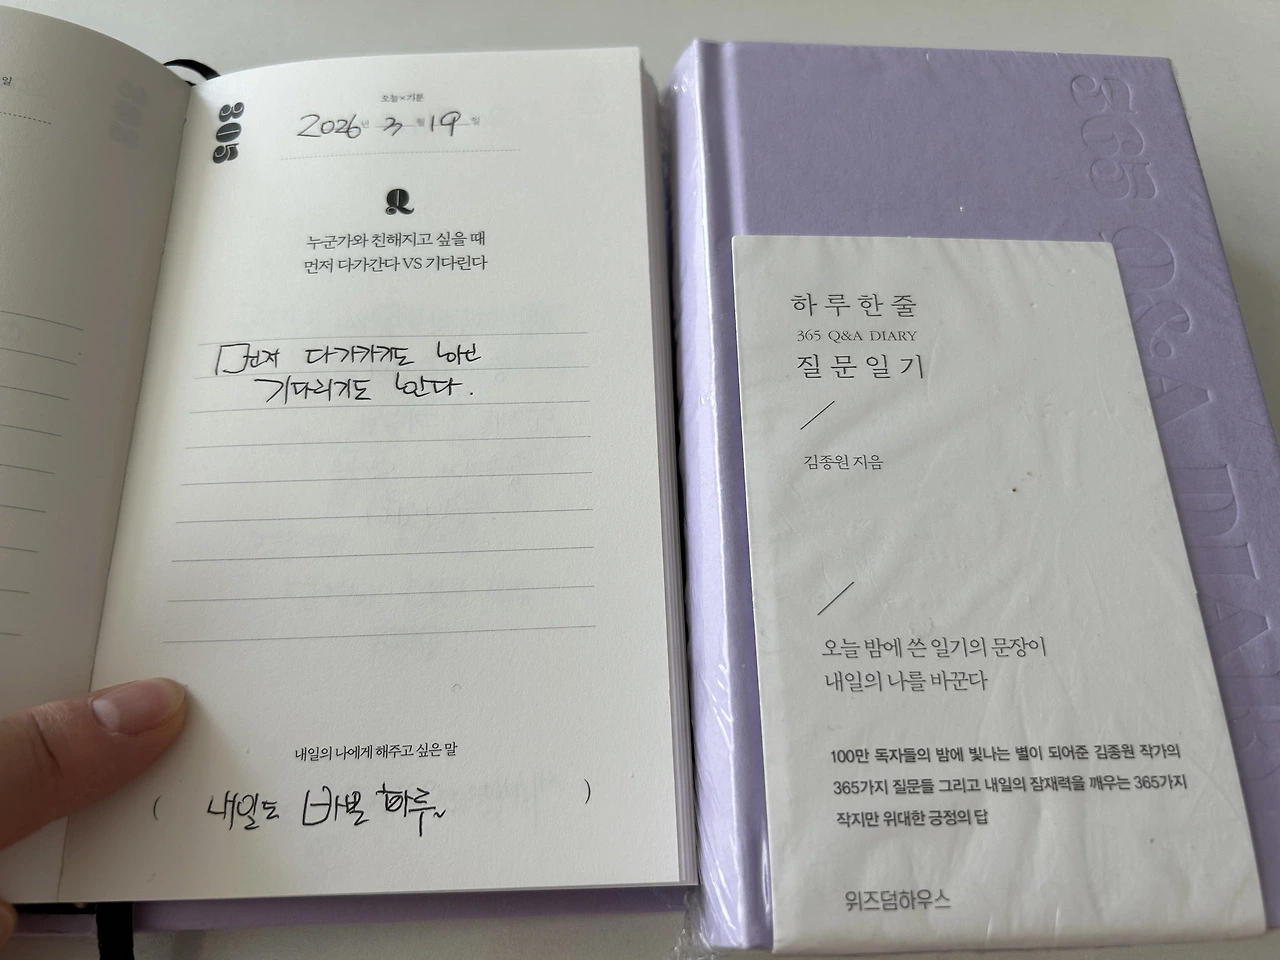 일
305
오늘×기분
2026년 3월 19일
Q
누군가와 친해지고 싶을 때
먼저 다가간다 VS 기다린다
먼저 다가가기도 하면
기다리기도 한다.
내일의 나에게 해주고 싶은 말
( 내일도 바쁠 하루~ )
365 Q&A DIARY
하루 한 줄
365 Q&A DIARY
질문일기
김종원 지음
오늘 밤에 쓴 일기의 문장이
내일의 나를 바꾼다
100만 독자들의 밤에 빛나는 별이 되어준 김종원 작가의
365가지 질문들 그리고 내일의 잠재력을 깨우는 365가지
작지만 위대한 긍정의 답
위즈덤하우스